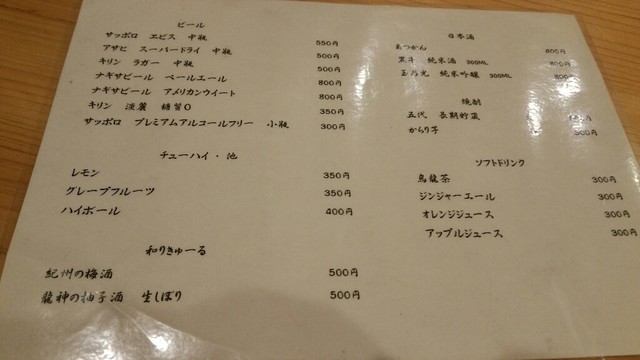 ビール
サッポロ ヱビス 中瓶 550円
アサヒ スーパードライ 中瓶 500円
キリン ラガー 中瓶 500円
ナギサビール ペールエール 800円
ナギサビール アメリカンウイート 800円
キリン 淡麗 糖質0 350円
サッポロ プレミアムアルコールフリー 小瓶 300円
チューハイ・他
レモン 350円
グレープフルーツ 350円
ハイボール 400円
和りきゅーる
紀州の梅酒 500円
龍神の柚子酒 生しぼり 500円
日本酒
あつかん 600円
黒牛 純米酒 300ML 800円
玉乃光 純米吟醸 300ML 800円
焼酎
五代 長期貯蔵
からり芋 300円
ソフトドリンク
烏龍茶 300円
ジンジャーエール 300円
オレンジジュース 300円
アップルジュース 300円